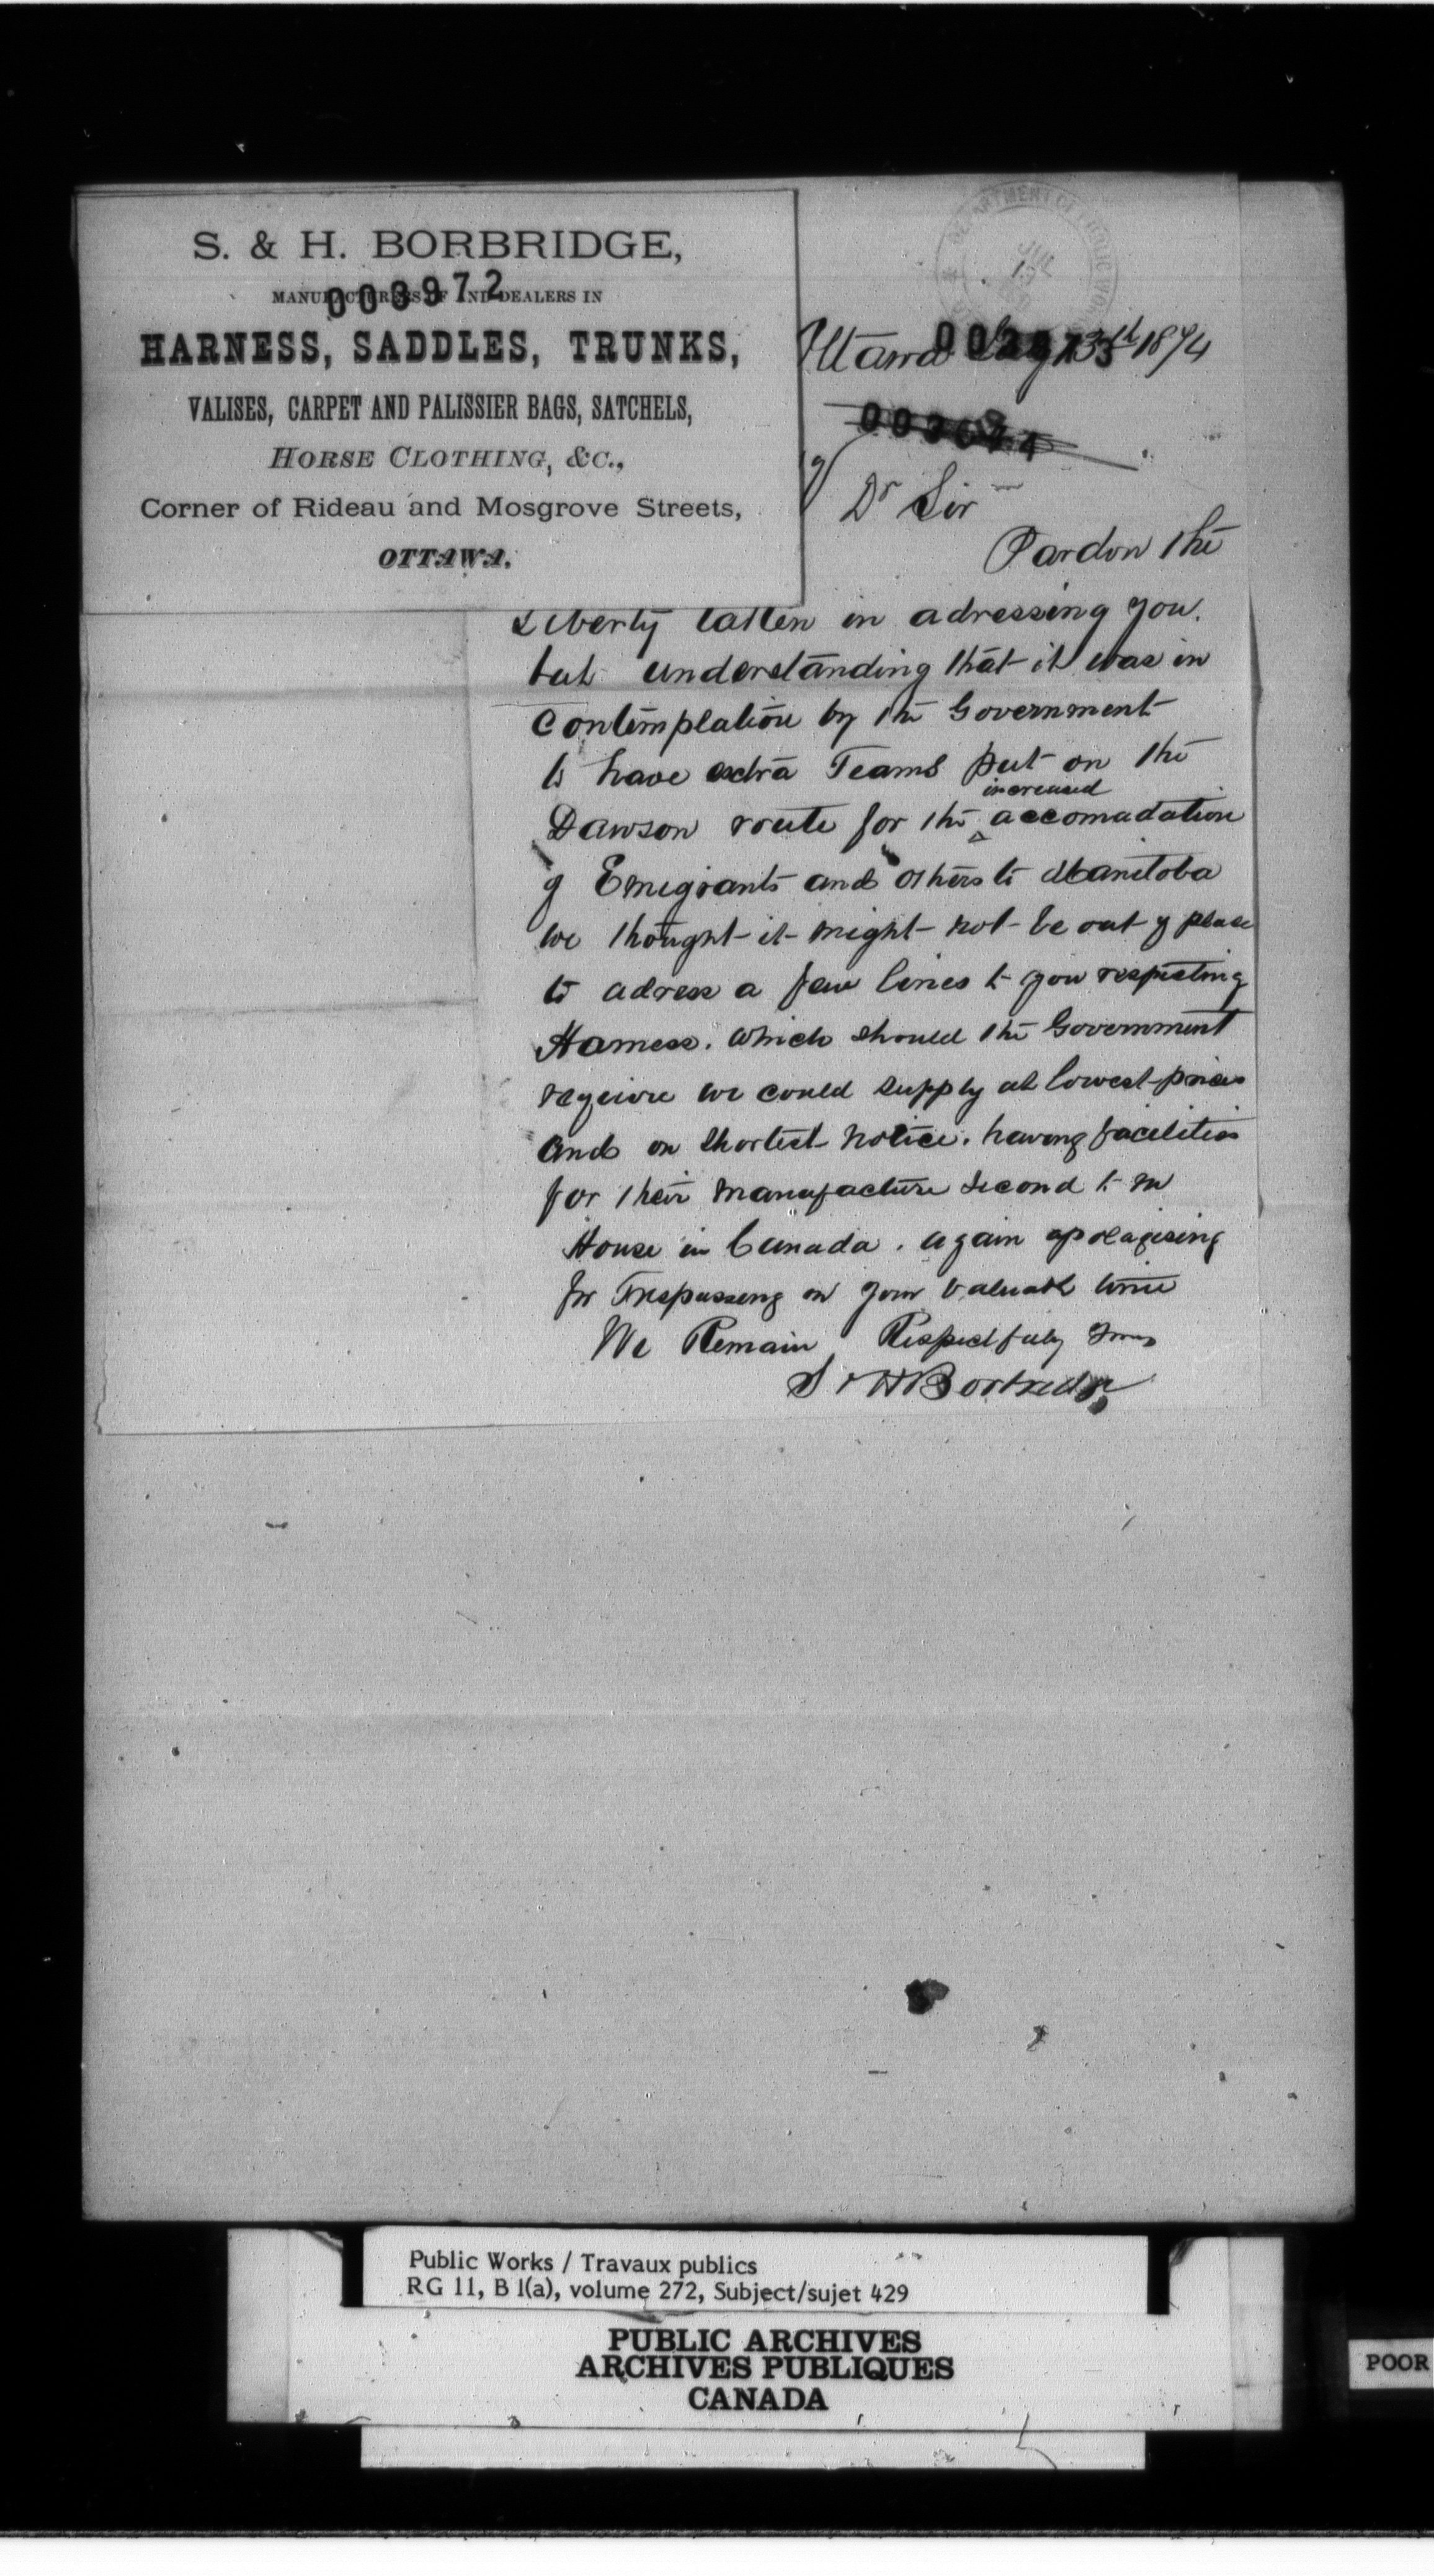 S. & H. BORBRIDGE,
MANUFACTURERS OF AND DEALERS IN
000972
HARNESS, SADDLES, TRUNKS,
VALISES, CARPET AND PALISSIER BAGS, SATCHELS,
HORSE CLOTHING, &C.,
Corner of Rideau and Mosgrove Streets,
OTTAWA.
DEPARTMENT OF PUBLIC WORKS
Ottawa 13th 1874
Dr Sir
Pardon the
Liberty taken in adressing you.
but understanding that it was in
Contemplation by the Government
to have extra Teams put on the
increased
Dawson route for the accomadation
of Emigrants and others to Manitoba
we thought it might not be out of place
to adress a few lines to you respecting
Harness. which should the Government
require we could supply at lowest prices
and on shortest notice. having facilities
for their manufacture second to no
House in Canada. again apologising
for Trespassing on your valuable time
We Remain Respectfuly Yours
S & H Borbridge
Public Works / Travaux publics
RG 11, B 1(a), volume 272, Subject/sujet 429
PUBLIC ARCHIVES
ARCHIVES PUBLIQUES
CANADA
POOR